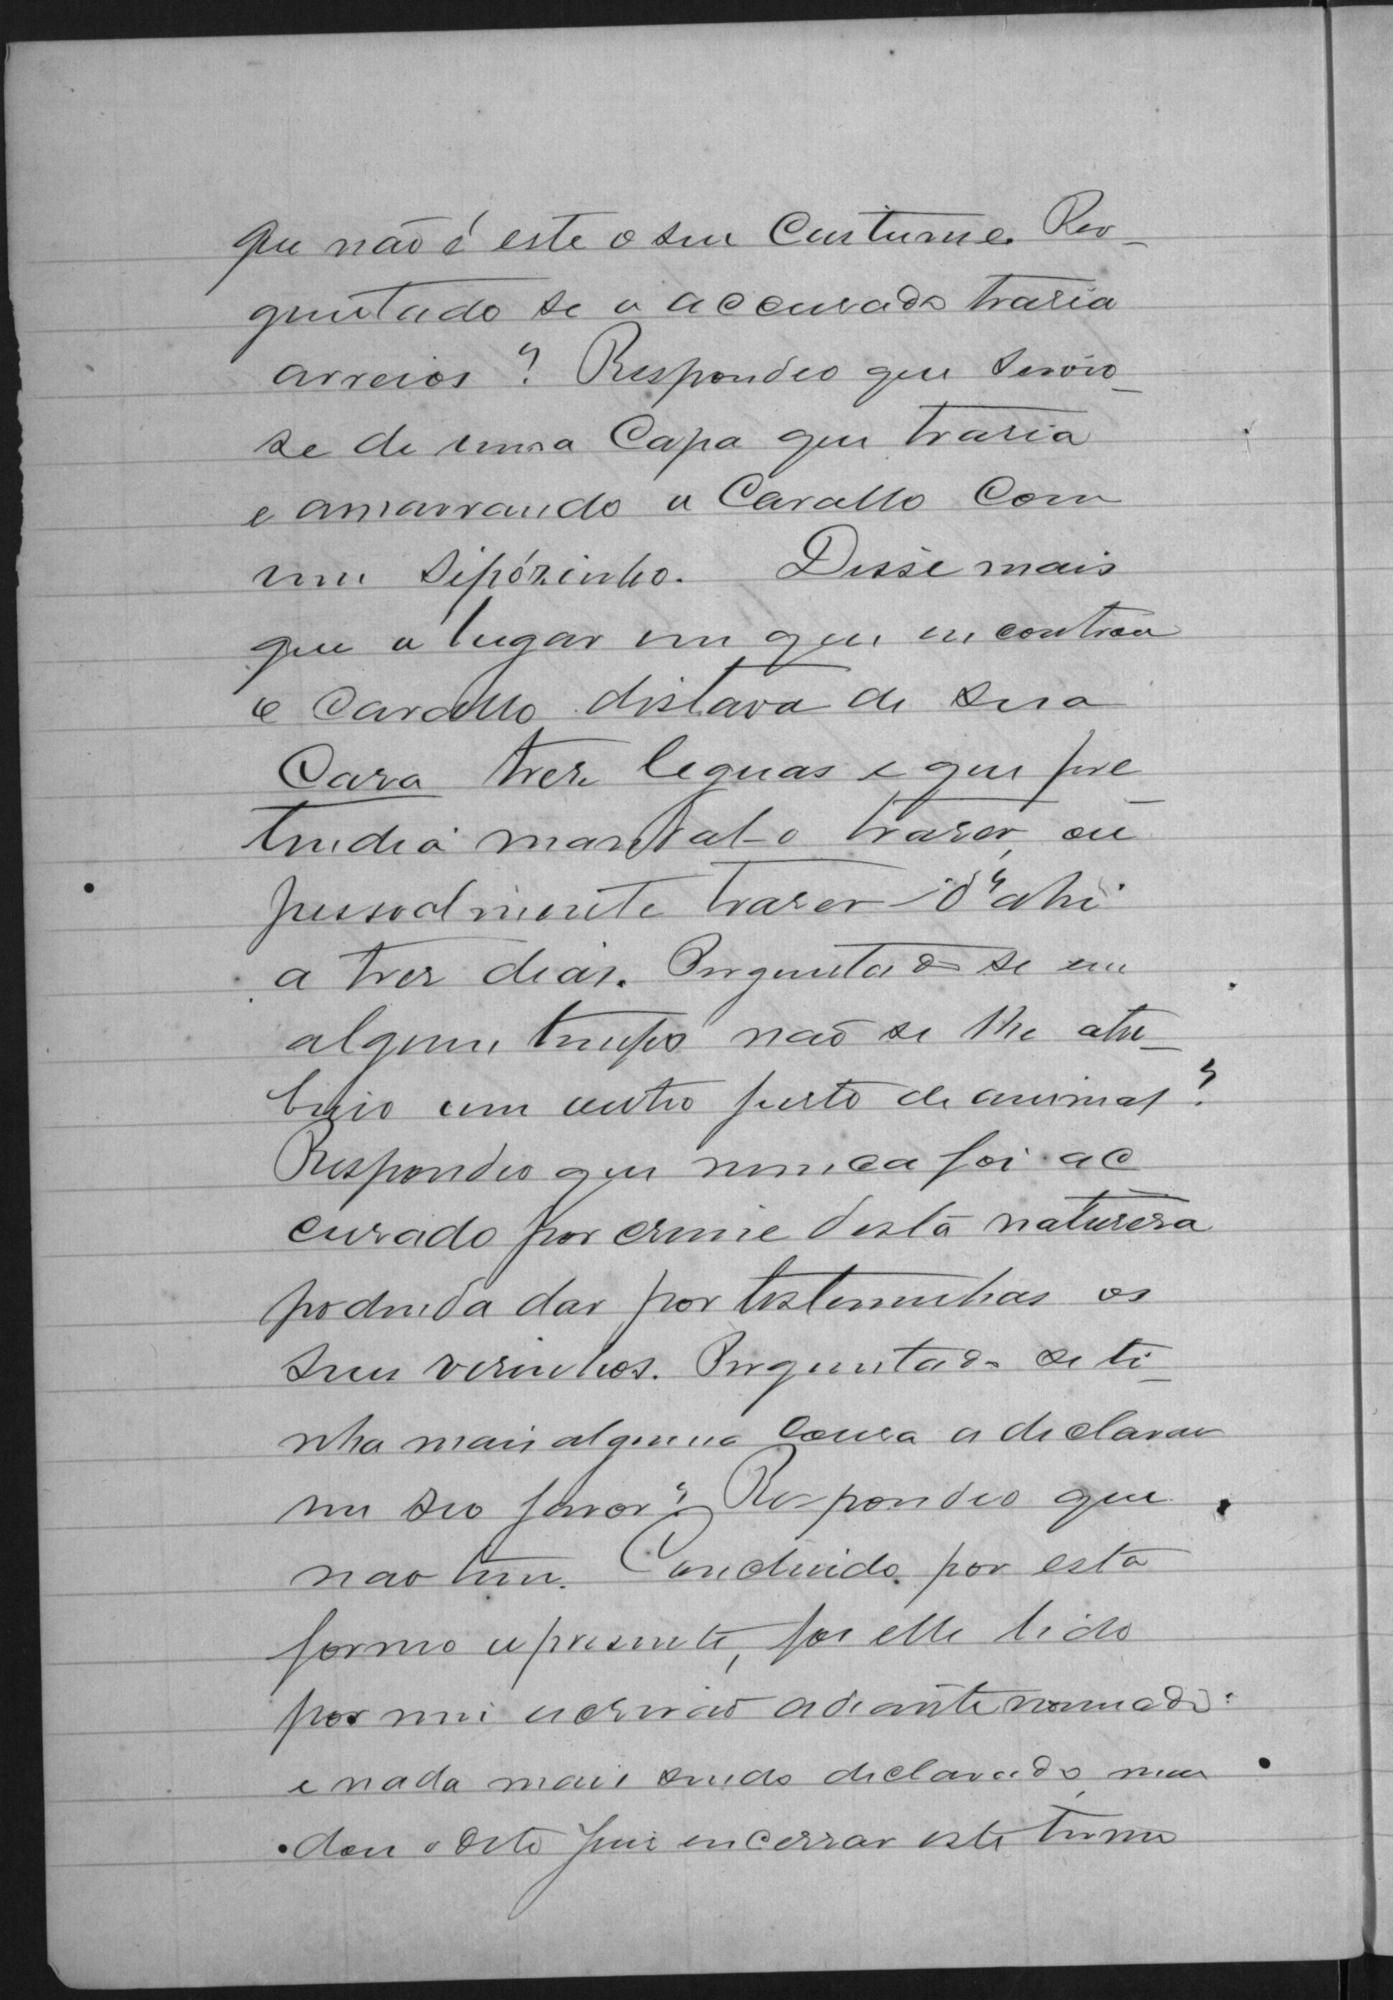 que não é este o seu custume. Per-
guntado se o accusado trasia
arreios? Respondeo que servio-
se de uma Capa que trasia
e amarrando o Cavallo com
um sipósinho. Disse mais
que o lugar em que encontrou
o Cavallo distava de sua
Casa tres leguas e que pre
tendia mandal-o traser, ou
pessoalmente traser d'ahi
a tres dias. Perguntado se em
algum tempo não se lhe attri-
buio um outro furto de animal?
Respondeo que nunca foi ac
cusado por crime desta naturesa
podendo dar por testemunhas os
seus visinhos. Perguntado se ti-
nha mais alguma cousa a declarar
em seo favor? Respondeo que
não tem. Concluido por esta
forma o presente, foi elle lido
por mim escrivão adiante nomeado
e nada mais sendo declarado, man
dou o dito Juiz encerrar este termo